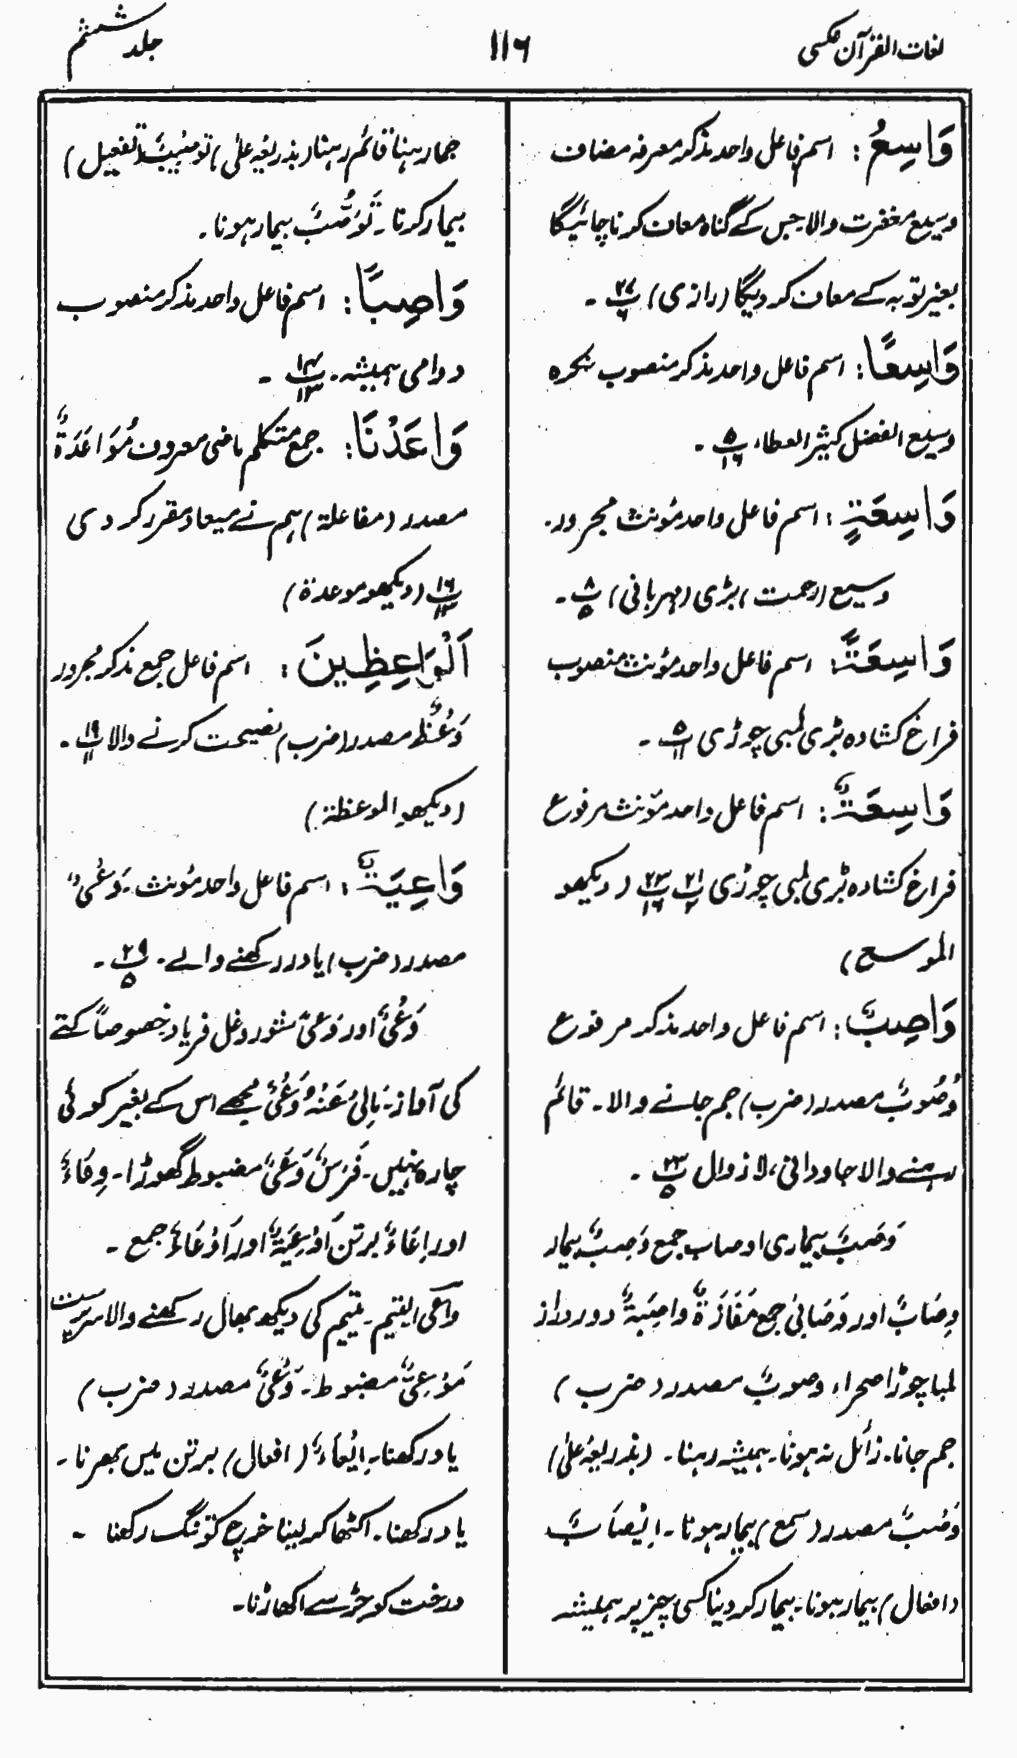 لغات القرآن عکسی
۱۱۶
جلد ششم
وَاسِعُ: اسم فاعل واحد مذکر معرفہ مضاف
وسیع مغفرت والا جس کے گناہ معاف کرنا چاہیگا
بغیر توبہ کے معاف کر دیگا (رازی) پ ۲۷ ۶ ۔
وَاسِعًا: اسم فاعل واحد مذکر منصوب نکرہ
وسیع الفضل کثیر العطاء پ ۵ ۱۶ ۔
وَاسِعَةٍ: اسم فاعل واحد مؤنث مجرور۔
وسیع (رحمت) بڑی (مہربانی) پ ۸ ۵ ۔
وَاسِعَةً: اسم فاعل واحد مؤنث منصوب
فراغ کشادہ بڑی لمبی چوڑی پ ۵ ۱۱ ۔
وَاسِعَةٌ: اسم فاعل واحد مؤنث مرفوع
فراغ کشادہ بڑی لمبی چوڑی پ ۲۱ ۲ پ ۲۳ ۱۶ (دیکھو
الموسع)
وَاصِبٌ: اسم فاعل واحد مذکر مرفوع
وُصُوبٌ مصدر (ضرب) جم جانے والا۔ قائم
رہنے والا جاودانی، لازوال پ ۲۳ ۵ ۔
وَصَبٌ بیماری اوصاب جمع وَصِبٌ بیمار
وِصَابٌ اور وَصَابیٰ جمع مَفَازَةٌ واصِبَةٌ دور دراز
لمبا چوڑا صحراء وصوبٌ مصدر (ضرب)
جم جانا۔ زائل نہ ہونا۔ ہمیشہ رہنا۔ (بذریعۂ علیٰ)
وَصَبٌ مصدر (سمع) بیمار ہونا۔ اِیْصَابٌ
(افعال) بیمار ہونا۔ بیمار کر دینا کسی چیز پر ہمیشہ
جما رہنا قائم رہنا (بذریعہ علیٰ) توصیبٌ (تفعیل)
بیمار کرنا۔ تَوَصُّبٌ بیمار ہونا۔
وَاصِبًا: اسم فاعل واحد مذکر منصوب
دوامی ہمیشہ۔ پ ۱۴ ۱۳ ۔
وَاعَدْنَا: جمع متکلم ماضی معروف مُوَاعَدَةٌ
مصدر (مفاعلة) ہم نے میعاد مقرر کر دی
پ ۱۶ ۱۳ (دیکھو موعدة)
اَلْوَاعِظِينَ: اسم فاعل جمع مذکر مجرور
وَعْظٌ مصدر (ضرب) نصیحت کرنے والا پ ۱۹ ۱۱ ۔
(دیکھو الموعظة)
وَاعِيَةٌ: اسم فاعل واحد مؤنث۔ وَعْیٌ
مصدر (ضرب) یاد رکھنے والے۔ پ ۲۹ ۵ ۔
وَعْیٌ اور وَعیً شور و غل فریاد خصوصاً کتے
کی آواز۔ مَالِیْ عَنْهُ وَعْیٌ مجھے اس کے بغیر کوئی
چارہ نہیں۔ فَرَسٌ وَعَیٌ مضبوط گھوڑا۔ وِعَاءٌ
اور اِعَاءٌ برتن اَوْعِيَةٌ اور اَوْعَاءٌ جمع۔
واعی الیتیم۔ یتیم کی دیکھ بھال رکھنے والا سرپرست
مَوْعِیٌّ مضبوط۔ وَعْیٌ مصدر (ضرب)
یاد رکھنا۔ اِیْعَاءٌ (افعال) برتن میں بھرنا۔
یاد رکھنا۔ اکٹھا کر لینا خرچ کو تنگ رکھنا ۔
درخت کو جڑ سے اکھاڑنا۔